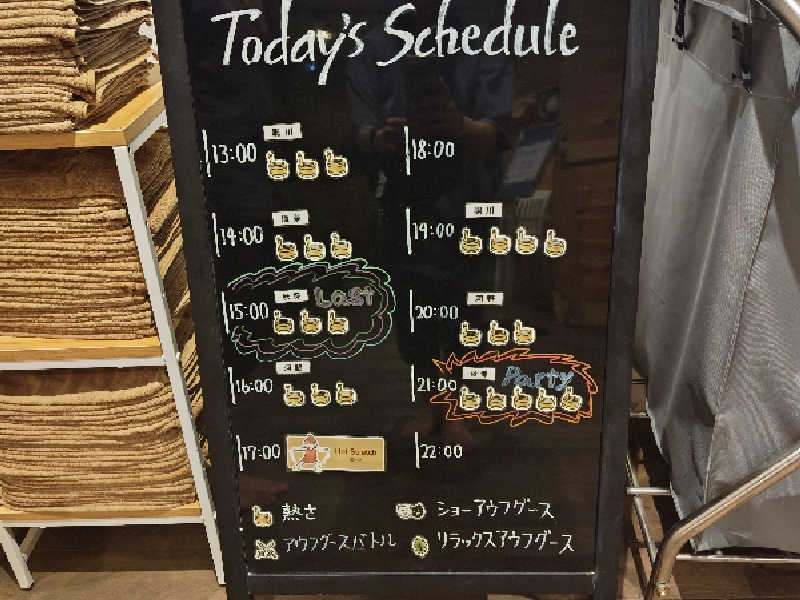 Today's Schedule
13:00
14:00
15:00 Last
16:00
17:00
18:00
19:00
20:00
21:00 Party
22:00
熱さ
アウフグースバトル
ショーアウフグース
リラックスアウフグース